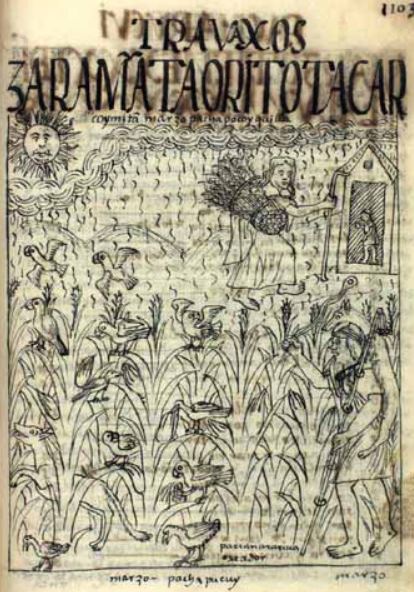 1103
TRAVAXOS
ZARAMÃTAORITOTACAR
coymita marzo pacha pocuy quilla
parian arariua
marzo - pacha pucuy
marzo